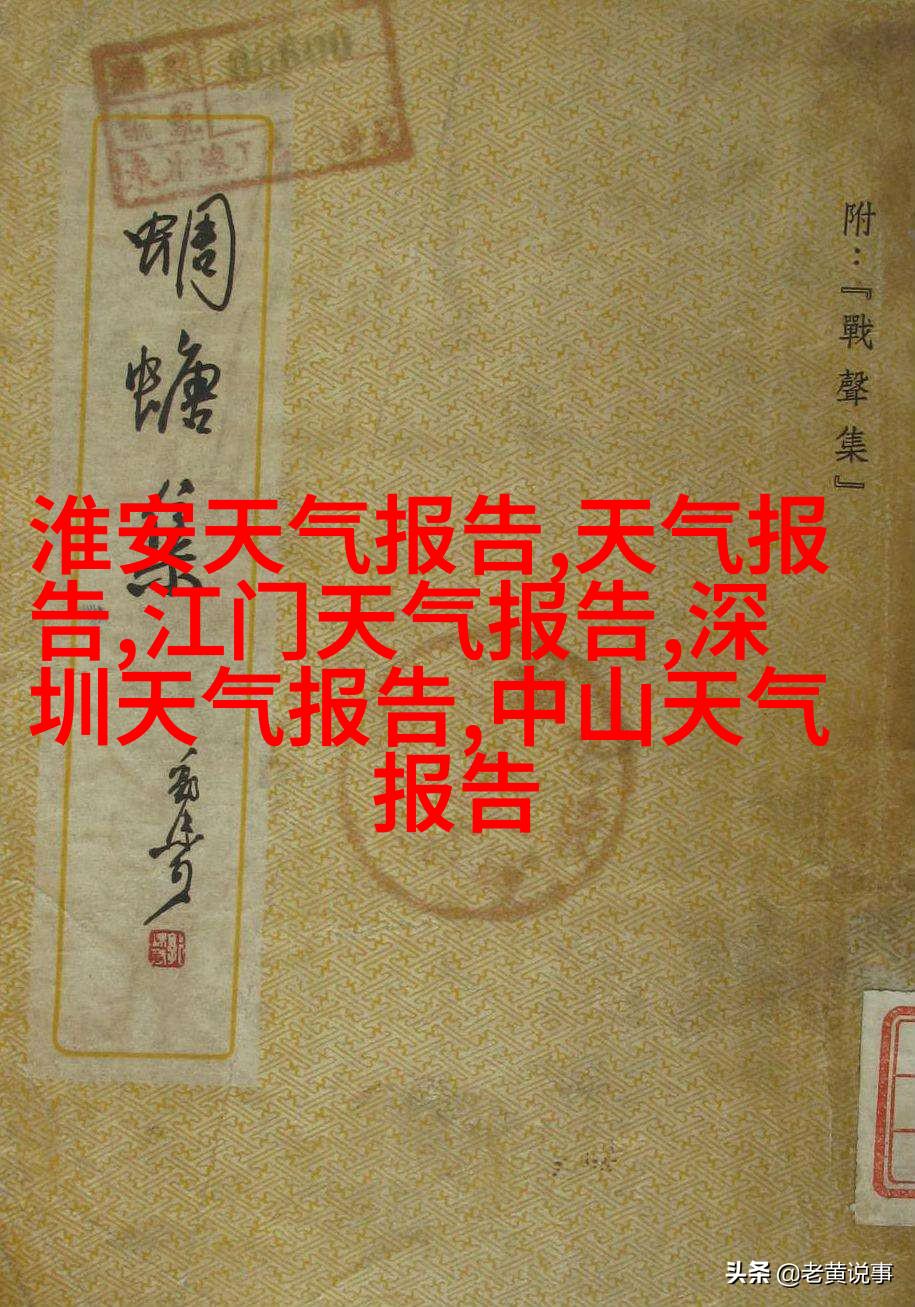 蜩螗集
附：『戰聲集』
淮安天气报告,天气报
告,江门天气报告,深
圳天气报告,中山天气
报告
头条 @老黄说事